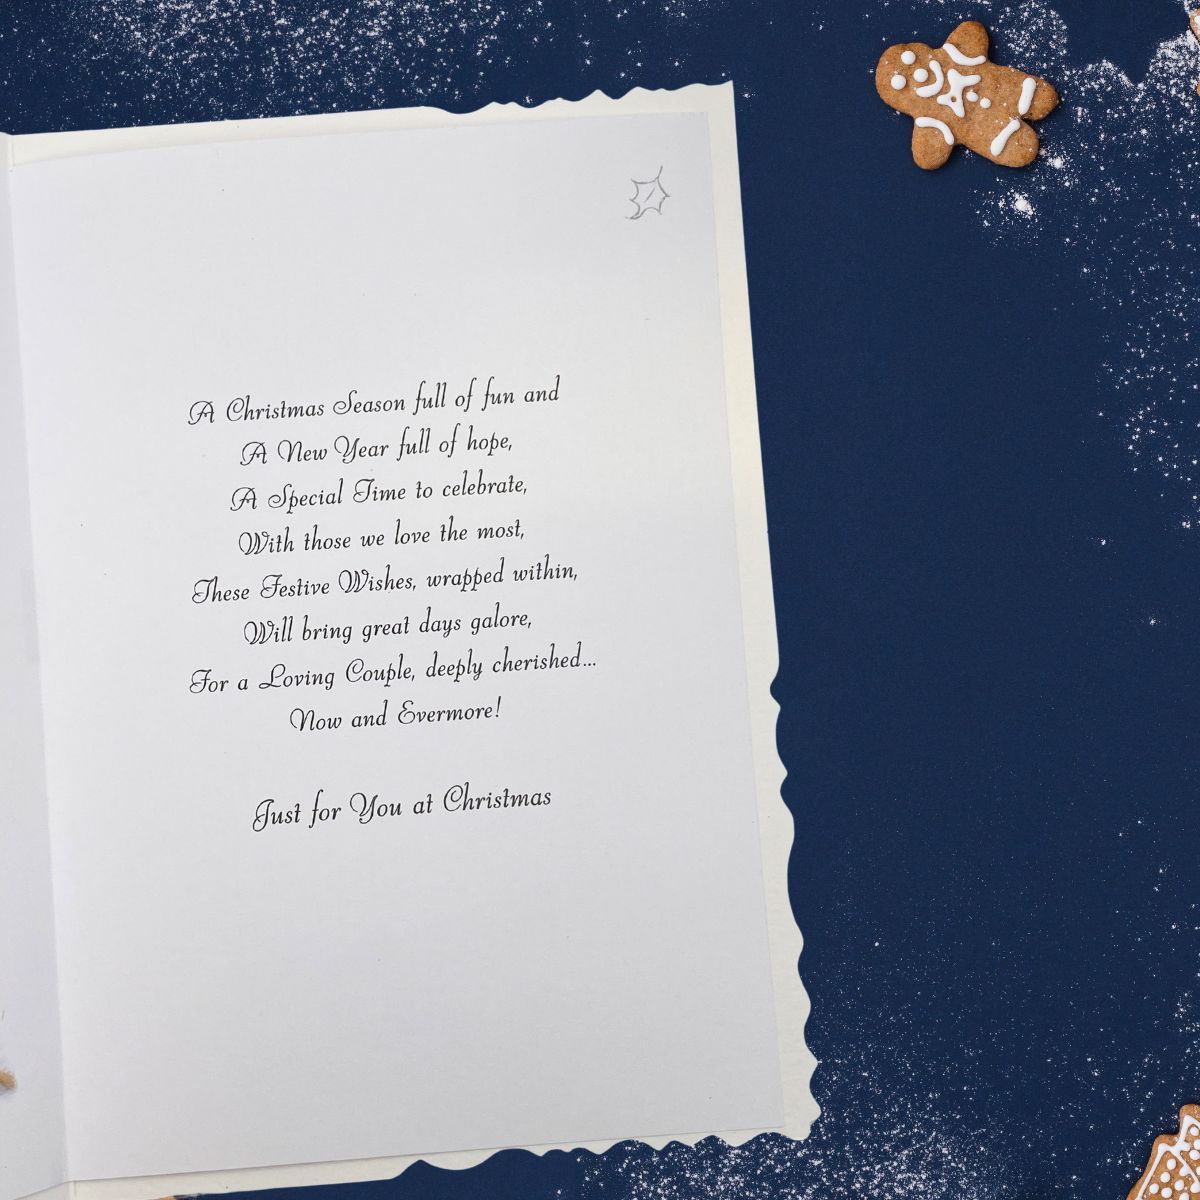 A Christmas Season full of fun and
A New Year full of hope,
A Special Time to celebrate,
With those we love the most,
These Festive Wishes, wrapped within,
Will bring great days galore,
For a Loving Couple, deeply cherished...
Now and Evermore!
Just for You at Christmas